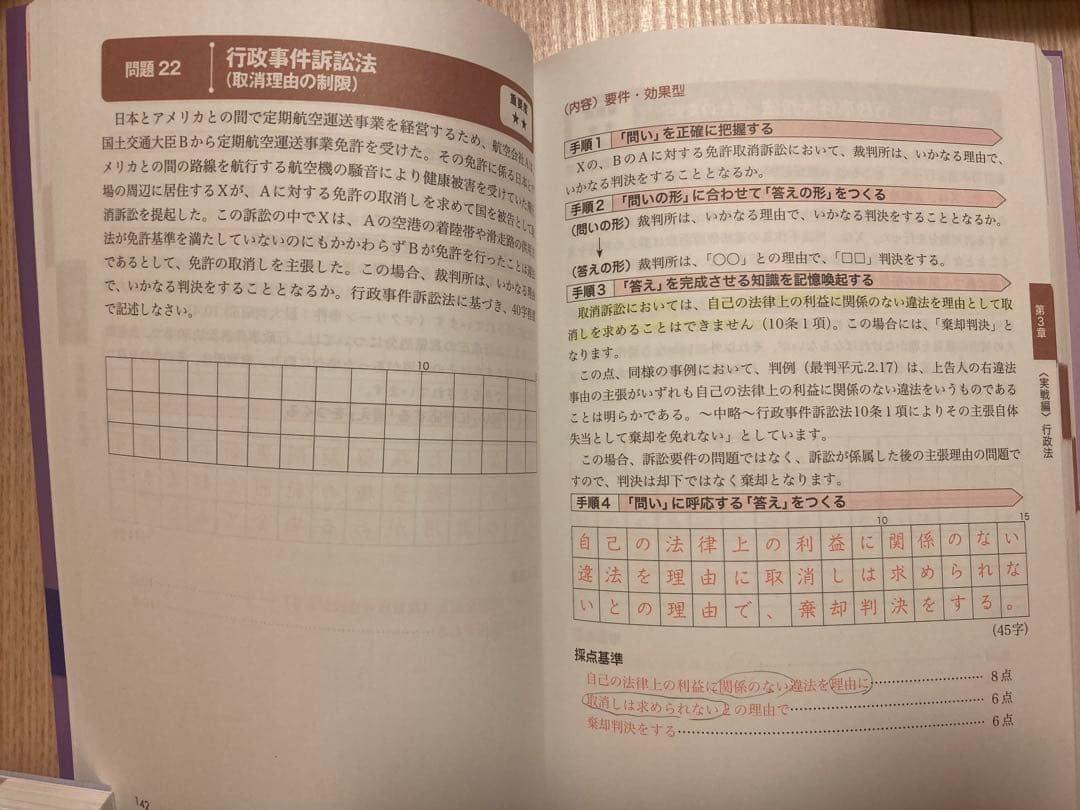 問題 22
行政事件訴訟法
(取消理由の制限)
重要度
★★
日本とアメリカとの間で定期航空運送事業を経営するため、航空会社Aは
国土交通大臣Bから定期航空運送事業免許を受けた。その免許に係る日本とア
メリカとの間の路線を航行する航空機の騒音により健康被害を受けていた
場の周辺に居住するXが、Aに対する免許の取消しを求めて国を被告として
消訴訟を提起した。この訴訟の中でXは、Aの空港の着陸帯や滑走路の
法が免許基準を満たしていないのにもかかわらずBが免許を行ったことは
であるとして、免許の取消しを主張した。この場合、裁判所は、いかなる理由
で、いかなる判決をすることとなるか。行政事件訴訟法に基づき、40字程度
で記述しなさい。
10
142
(内容) 要件・効果型
手順1 「問い」を正確に把握する
Xの、BのAに対する免許取消訴訟において、裁判所は、いかなる理由で、
いかなる判決をすることとなるか。
手順2 「問いの形」に合わせて「答えの形」をつくる
(問いの形) 裁判所は、いかなる理由で、いかなる判決をすることとなるか。
↓
(答えの形) 裁判所は、「○○」との理由で、「□□」判決をする。
手順3 「答え」を完成させる知識を記憶喚起する
取消訴訟においては、自己の法律上の利益に関係のない違法を理由として取
消しを求めることはできません (10条1項)。この場合には、「棄却判決」と
なります。
この点、同様の事例において、判例 (最判平元.2.17) は、上告人の右違法
事由の主張がいずれも自己の法律上の利益に関係のない違法をいうものである
ことは明らかである。～中略～行政事件訴訟法10条1項によりその主張自体
失当として棄却を免れない」としています。
この場合、訴訟要件の問題ではなく、訴訟が係属した後の主張理由の問題で
すので、判決は却下ではなく棄却となります。
手順4 「問い」に呼応する「答え」をつくる
10 15
自己の法律上の利益に関係のない
違法を理由に取消しは求められな
いとの理由で、棄却判決をする。
(45字)
採点基準
自己の法律上の利益に関係のない違法を理由に 8点
取消しは求められないとの理由で 6点
棄却判決をする 6点
第3章
〈実戦編〉行政法